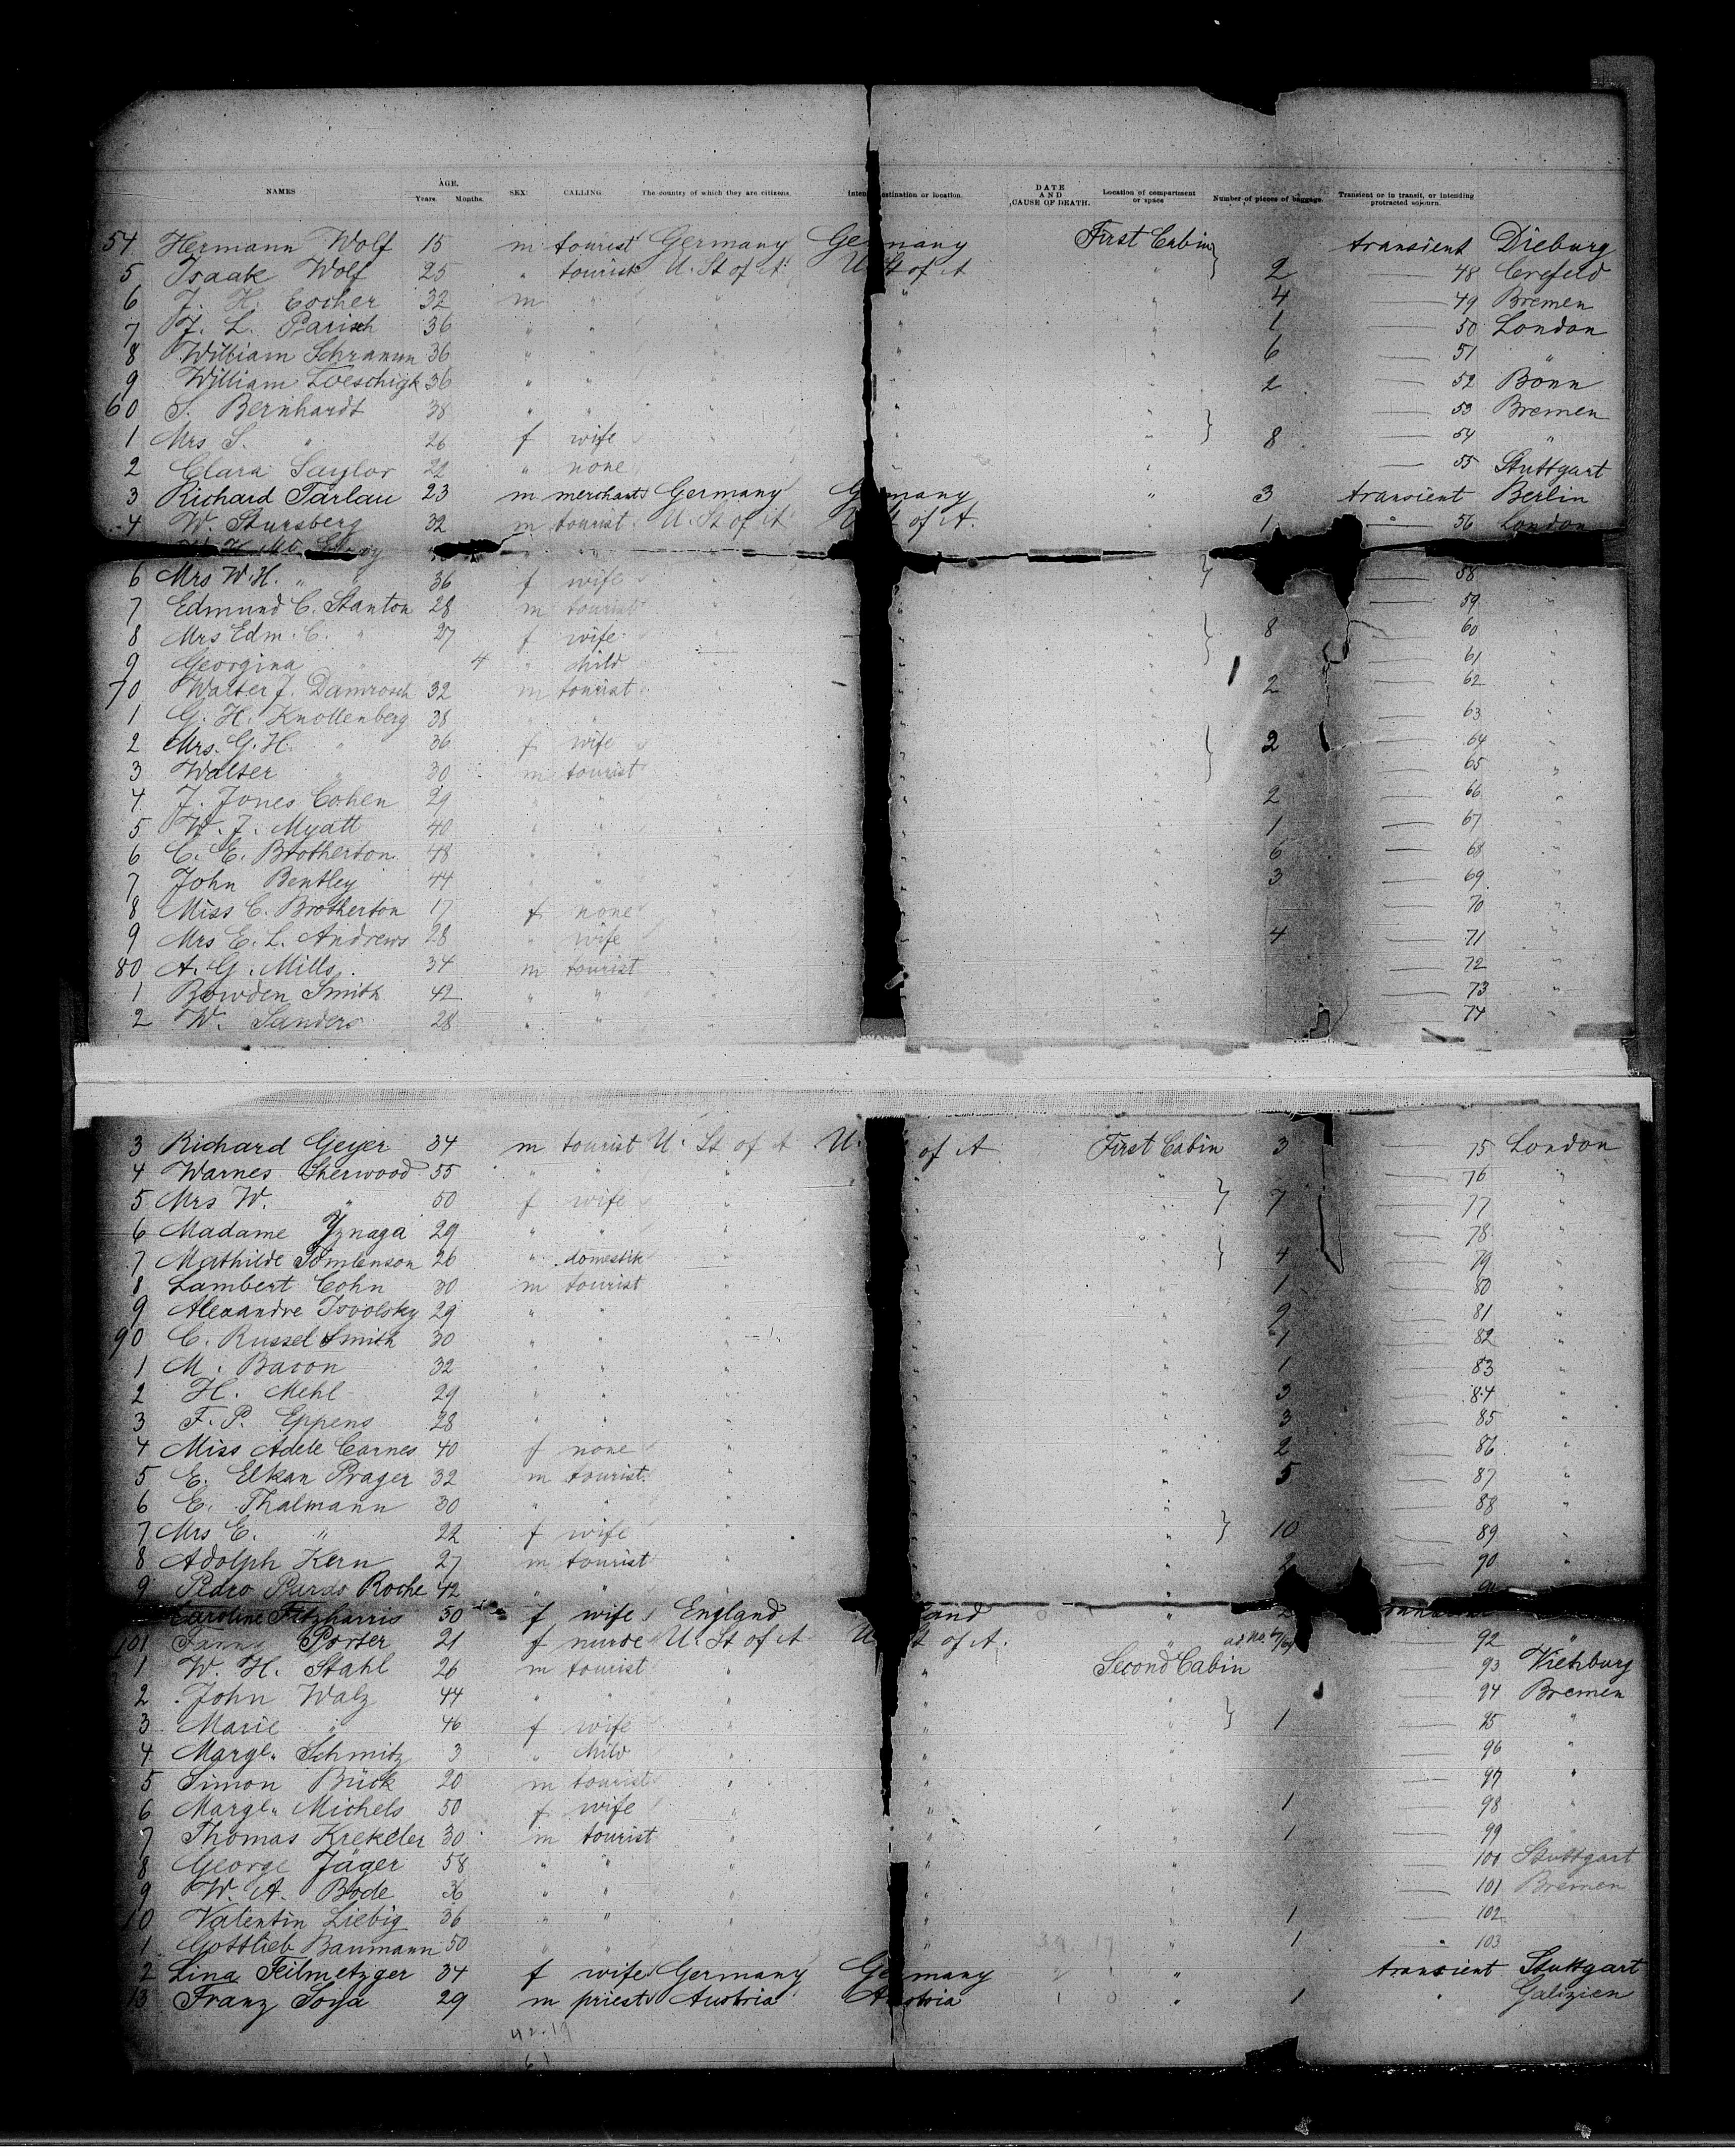 NAMES AGE. Years. Months. SEX. CALLING. The country of which they are citizens. destination or location. DATE AND CAUSE OF DEATH. Location of compartment or space Number of pieces of baggage. Transient or in transit, or intending protracted sojourn.
54 Hermann Wolf 15 m tourist Germany Germany First Cabin } transient Dieburg
5 Isaak Wolf 25 " tourist U. St of A. U. St of A " 2 — 48 Crefeld
6 J. H. Cocher 32 m " " " " 4 — 49 Bremen
7 J. L. Parisch 36 " " " " " 1 — 50 London
8 William Schramm 36 " " " " " 6 — 51 "
9 William Loeschigk 36 " " " " " 2 — 52 Bonn
60 S. Bernhardt 38 " " " " " } — 53 Bremen
1 Mrs S. " 26 f wife " " " 8 — 54 "
2 Clara Saylor 22 " none " " " — 55 Stuttgart
3 Richard Tarlau 23 m merchant Germany Germany " 3 transient Berlin
4 W. Stursberg 32 m tourist U. St of A U. St of A. 1 — 56 London
W. H. Mc
6 Mrs W. H. " " 36 f wife " " " } — 58 "
7 Edmund C. Stanton 28 m tourist " " " — 59 "
8 Mrs Edm. C. " 27 f wife " " " } 8 — 60 "
9 Georgina " 4 " child " " " — 61 "
70 Walter J. Damrosch 32 m tourist " " " 2 — 62 "
1 G. H. Knollenberg 38 " " " " " — 63 "
2 Mrs. G. H. " 36 f wife " " " } 2 — 64 "
3 Walter " 30 m tourist " " " — 65 "
4 J. Jones Cohen 29 " " " " " 2 — 66 "
5 W. J. Myatt 40 " " " " " 1 — 67 "
6 C. E. Brotherton 48 " " " " " 6 — 68 "
7 John Bentley 44 " " " " " 3 — 69 "
8 Miss C. Brotherton 17 f none " " " — 70 "
9 Mrs E. L. Andrews 28 " wife " " " 4 — 71 "
80 A. G. Mills 34 m tourist " " " — 72 "
1 Bowden Smith 42 " " " " " — 73 "
2 W. Sanders 28 " " " " " — 74 "
3 Richard Geyer 34 m tourist U. St of A U. of A First Cabin 3 — 75 London
4 Warnes Sherwood 55 " " " " " — 76 "
5 Mrs W. " 50 f wife " " " } 7 — 77 "
6 Madame Yznaga 29 " " " " " — 78 "
7 Mathilde Tomlenson 26 " domestik " " " } 4 — 79 "
8 Lambert Cohn 30 m tourist " " " 1 — 80 "
9 Alexandre Isvolsky 29 " " " " " 2 — 81 "
90 C. Russel Smith 30 " " " " " 1 — 82 "
1 M. Bacon 32 " " " " " 1 — 83 "
2 H. Mehl 29 " " " " " 3 — 84 "
3 F. P. Eppens 28 " " " " " 3 — 85 "
4 Miss Adele Carnes 40 f none " " " 2 — 86 "
5 E. Elkan Prager 32 m tourist " " " 5 — 87 "
6 E. Thalmann 30 " " " " " — 88 "
7 Mrs E. " 22 f wife " " " } 10 — 89 "
8 Adolph Kern 27 m tourist " " " 2 — 90 "
9 Pedro Pardo Roche 42 " " " "
Caroline Fitzharris 50 f wife England
101 Porter 21 f nurse U. St of A U. St of A. " — 92 "
1 W. H. Stahl 26 m tourist " " Second Cabin — 93
2 John Walz 44 " " " " " — 94 Bremen
3 Marie " 46 f wife " " " } 1 — 95 "
4 Margr. Schmitz 3 " child " " " — 96 "
5 Simon Bück 20 m tourist " " " — 97 "
6 Margr. Michels 50 f wife " " " 1 — 98 "
7 Thomas Krekeler 30 m tourist " " " 1 — 99 "
8 George Jäger 58 " " " " " — 100 Stuttgart
9 W. A. Bode 36 " " " " " — 101 Bremen
10 Valentin Liebig 36 " " " " " 1 — 102
1 Gottlieb Baumann 50 " " " " " 1 " 103
2 Lina Feilmetzger 34 f wife Germany Germany " transient Stuttgart
13 Franz Soya 29 m priest Austria Austria " 1 " Galizien
42.19